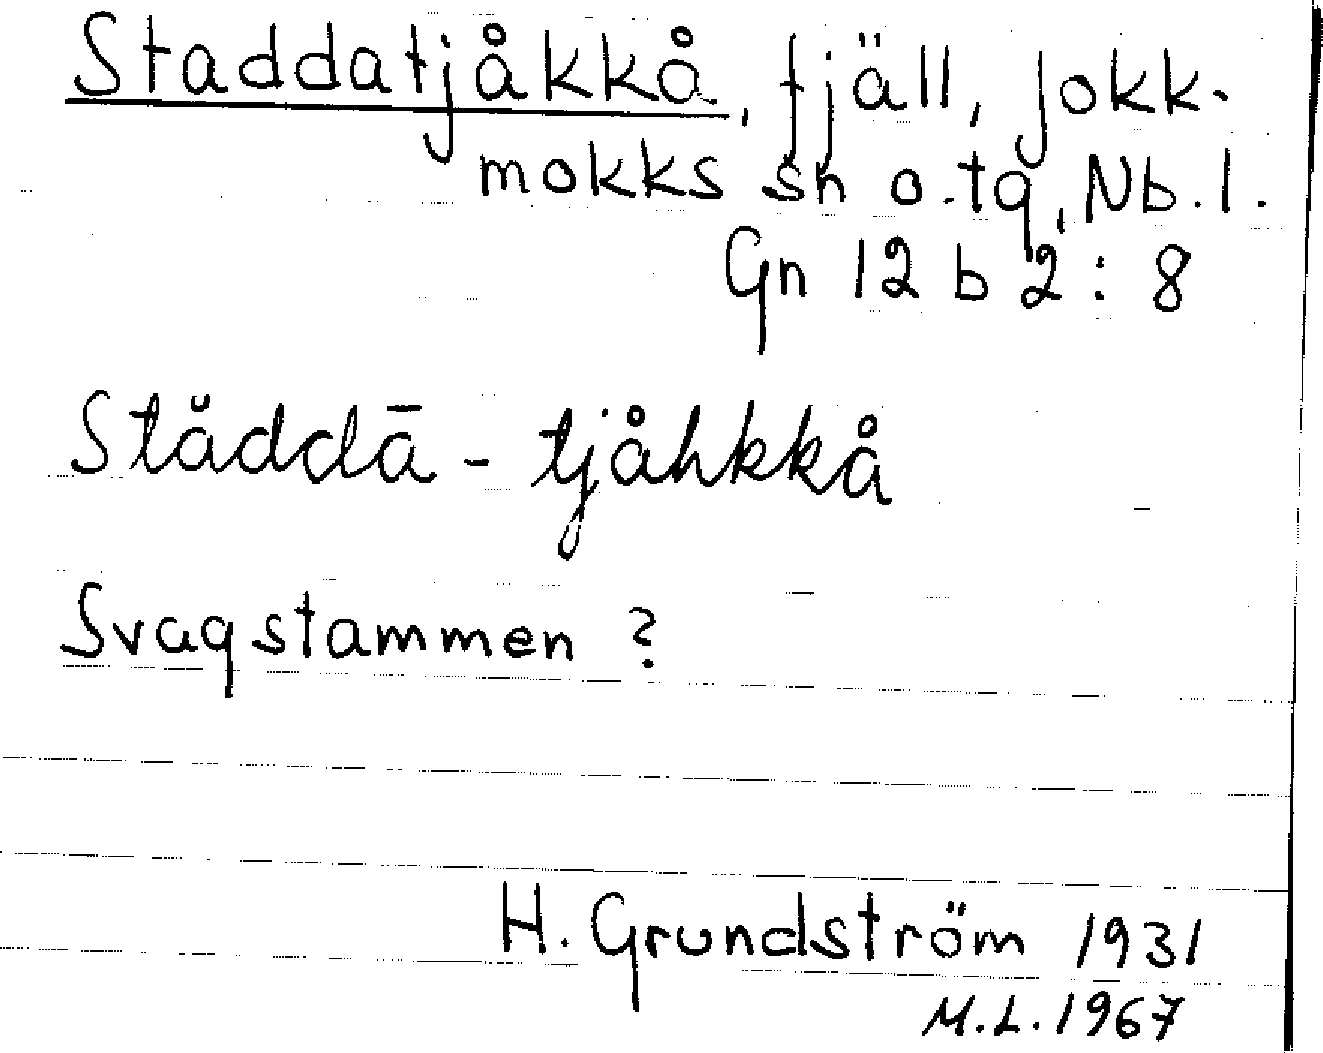 Staddatjåkkå, fjäll, Jokk-
mokks sn o. tg, Nb. l.
Gn 12 b 2 : 8
Stăddā - tjåhkkå
Svagstammen ?
H. Grundström 1931
M.L. 1967